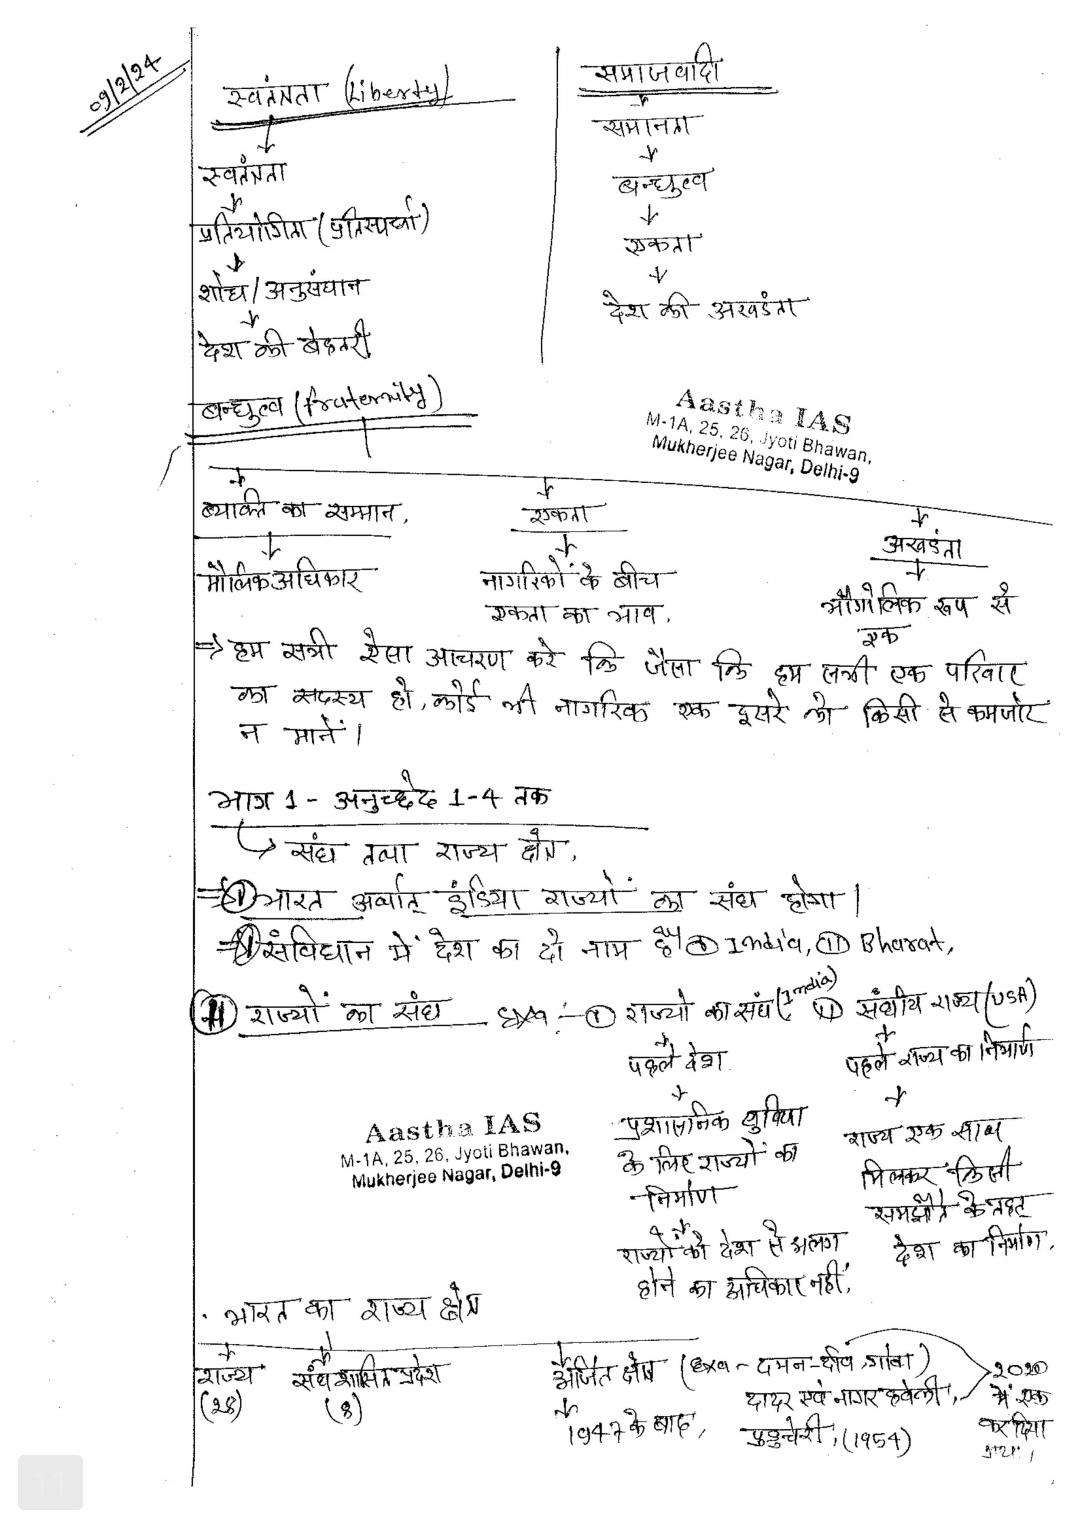 09/2/24
स्वतंत्रता (Liberty)
स्वतंत्रता
प्रतियोगिता (प्रतिस्पर्धा)
शोध/अनुसंधान
देश की बेहतरी
समाजवादी
समानता
बन्धुत्व
एकता
देश की अखडंता
बन्धुत्व (fraternity)
Aastha IAS
M-1A, 25, 26, Jyoti Bhawan,
Mukherjee Nagar, Delhi-9
व्यक्ति का सम्मान,
मौलिक अधिकार
एकता
नागरिकों के बीच
एकता का भाव,
अखडंता
भौगोलिक रूप से
एक
⇒ हम सभी ऐसा आचरण करे कि जैसा कि हम सभी एक परिवार
का सदस्य हो, कोई भी नागरिक एक दूसरे को किसी से कमजोर
न माने।
भाग 1 - अनुच्छेद 1-4 तक
संघ तथा राज्य क्षेत्र,
⇒ भारत अर्थात् इंडिया राज्यों का संघ होगा।
⇒ संविधान में देश का दो नाम है (i) India, (ii) Bharat,
राज्यों का संघ Exa :- (i) राज्यो का संघ (India) (ii) संघीय राज्य (USA)
पहले देश
प्रशासनिक सुविधा
के लिए राज्यों का
निर्माण
राज्यों को देश से अलग
होने का अधिकार नहीं,
पहले राज्य का निर्माण
राज्य एक साथ
मिलकर किसी
समझौते के तहत
देश का निर्माण,
Aastha IAS
M-1A, 25, 26, Jyoti Bhawan,
Mukherjee Nagar, Delhi-9
. भारत का राज्य क्षेत्र
राज्य
(28)
संघ शासित प्रदेश
(8)
अर्जित क्षेत्र (Exa - दमन-दीव, गोवा)
1947 के बाद,
दादर एवं नागर हवेली,
पुडुचेरी, (1954)
2020
में एक
कर दिया
गया।
11